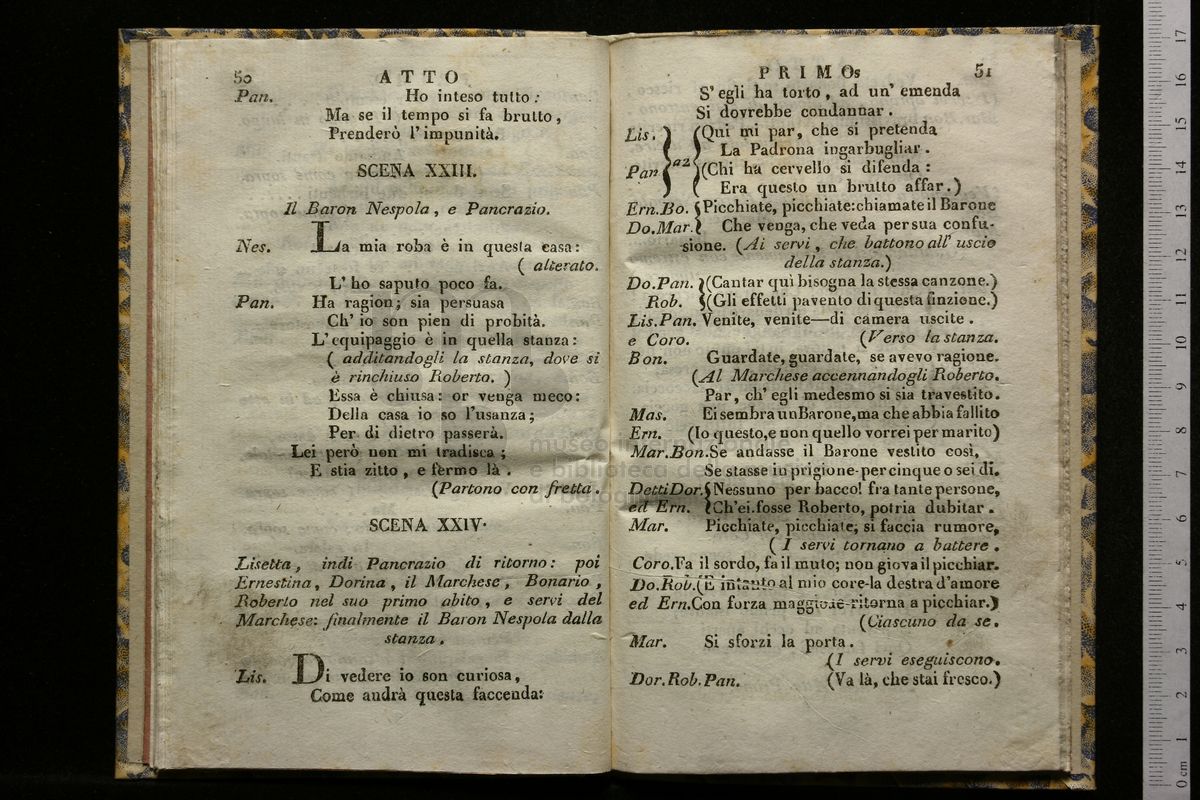 50 ATTO
Pan. Ho inteso tutto :
Ma se il tempo si fa brutto,
Prenderò l'impunità.
SCENA XXIII.
Il Baron Nespola, e Pancrazio.
Nes. La mia roba è in questa casa:
( alterato.
L' ho saputo poco fa.
Pan. Ha ragion; sia persuasa
Ch' io son pien di probità.
L'equipaggio è in quella stanza:
( additandogli la stanza, dove si
è rinchiuso Roberto. )
Essa è chiusa: or venga meco:
Della casa io so l'usanza;
Per di dietro passerà.
Lei però non mi tradisca ;
E stia zitto , e fermo là .
(Partono con fretta .
SCENA XXIV.
Lisetta, indi Pancrazio di ritorno: poi
Ernestina, Dorina, il Marchese, Bonario,
Roberto nel suo primo abito, e servi del
Marchese: finalmente il Baron Nespola dalla
stanza.
Lis. Di vedere io son curiosa,
Come andrà questa faccenda:
PRIMOs 51
S' egli ha torto , ad un' emenda
Si dovrebbe condannar .
Lis. (Qui mi par, che si pretenda
La Padrona ingarbugliar .
Pan a2 (Chi ha cervello si difenda :
Era questo un brutto affar.)
Ern.Bo. Picchiate, picchiate:chiamate il Barone
Do.Mar. Che venga, che veda per sua confu-
sione. (Ai servi , che battono all' uscio
della stanza.)
Do.Pan. (Cantar quì bisogna la stessa canzone.)
Rob. (Gli effetti pavento di questa finzione.)
Lis.Pan. Venite, venite—di camera uscite .
e Coro. (Verso la stanza.
Bon. Guardate, guardate, se avevo ragione.
(Al Marchese accennandogli Roberto.
Par, ch' egli medesmo si sia travestito.
Mas. Ei sembra un Barone, ma che abbia fallito
Ern. (Io questo, e non quello vorrei per marito)
Mar.Bon. Se andasse il Barone vestito così,
Se stasse in prigione-per cinque o sei dì.
Detti Dor. Nessuno per bacco! fra tante persone,
ed Ern. Ch'ei.fosse Roberto, potria dubitar .
Mar. Picchiate, picchiate, si faccia rumore,
( I servi tornano a battere .
Coro. Fa il sordo, fa il muto; non giova il picchiar.
Do.Rob. (E intanto al mio core-la destra d'amore
ed Ern. Con forza maggiore-ritorna a picchiar.)
(Ciascuno da se.
Mar. Si sforzi la porta .
(I servi eseguiscono.
Dor.Rob.Pan. (Va là, che stai fresco.)
0 cm 1 2 3 4 5 6 7 8 9 10 11 12 13 14 15 16 17